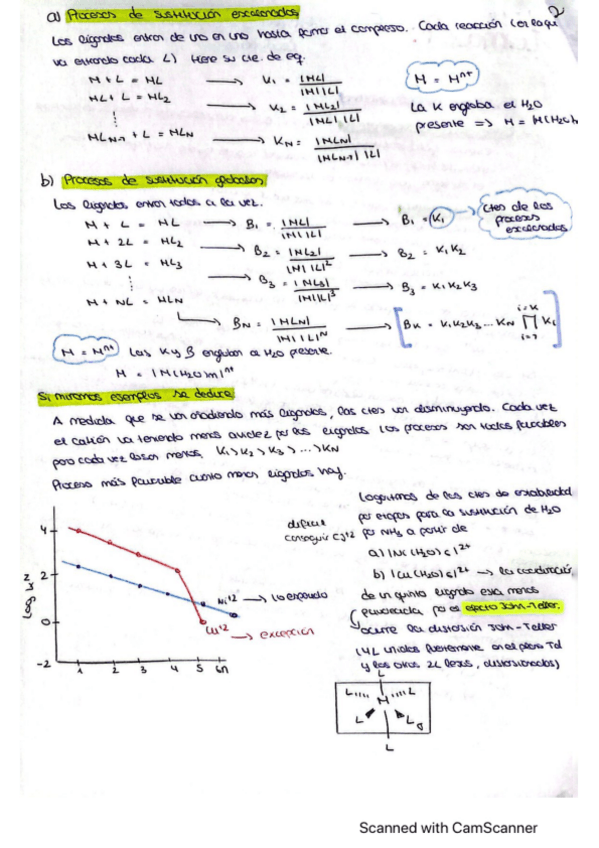 a) Procesos de sustitución escalonados 2
Los ligandos entran de uno en uno hasta formar el complejo. Cada reacción (en la que
va entrando cada L) tiene su cte. de eq.
M + L = ML → K₁ = |ML| / |M||L|
M = Mⁿ⁺
ML + L = ML₂ → K₂ = |ML₂| / |ML||L|
La K engloba el H₂O
presente => M = M(H₂O)
⋮
MLN-1 + L = MLN → KN = |MLN| / |MLN-1||L|
b) Procesos de sustitución globales
Los ligandos entran todos a la vez.
M + L = ML → B₁ = |ML| / |M||L| → B₁ = K₁
ctes de los
procesos
escalonados
M + 2L = ML₂ → B₂ = |ML₂| / |M||L|² → B₂ = K₁K₂
M + 3L = ML₃ → B₃ = |ML₃| / |M||L|³ → B₃ = K₁K₂K₃
⋮
M + NL = MLN → BN = |MLN| / |M||L|ᴺ → [BK = K₁K₂K₃...KN ∏ Ki] i=K i=1
M = Mⁿ⁺ Las K y B engloban a H₂O presente.
M = |M(H₂O)m|ⁿ⁺
Si miramos ejemplos se deduce
A medida que se van añadiendo más ligandos, las ctes van disminuyendo. Cada vez
el catión va teniendo menos avidez por los ligandos. Los procesos son todos favorables
pero cada vez lo son menos, K₁>K₂>K₃>...>KN
Proceso más favorable cuanto menos ligandos hay.
log KN
4
2
0
-2
1 2 3 4 5 6 n
difícil
conseguir Cu+2
Ni+2 → lo esperado
Cu+2 → excepción
Logaritmos de las ctes de estabilidad
por etapas para la sustitución de H₂O
por NH₃ a partir de
a) |Ni(H₂O)6|²⁺
b) |Cu(H₂O)6|²⁺ → la coordinación
de un quinto ligando está menos
favorecida por el efecto Jahn-Teller.
ocurre la distorsión Jahn-Teller
(4L unidos fuertemente en el plano Td
y los otros 2L lejos, distorsionados)
L
L L
M
L L
L
Scanned with CamScanner